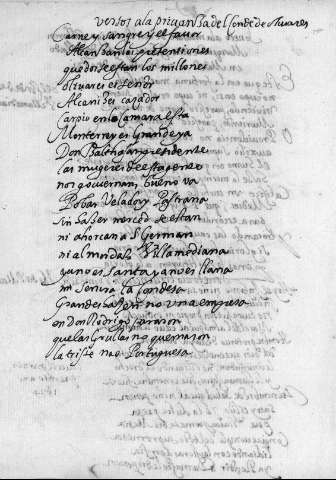 versos a la priuansa del Conde de oliuares
Carne y sangre y el fauor
Alcansan los pretentiones
que dose estan los millones
oliuares es señor
Alcanises cazador
Carpio en la camara esta
Monterrey es Grande ya
Don Balthasar presidente
las mugeres de esta gente
nos gouiernan, bueno va
Tobar Velador y Pastrana
sin haser merced se estan
ni ahorcan a S. German
ni al
ya no es santa ya no es llana
mi señora la Condesa
Grandeza no una empresa
en Don Rodrigo
que las Grullas no quemaron
la triste nao Portuguesa